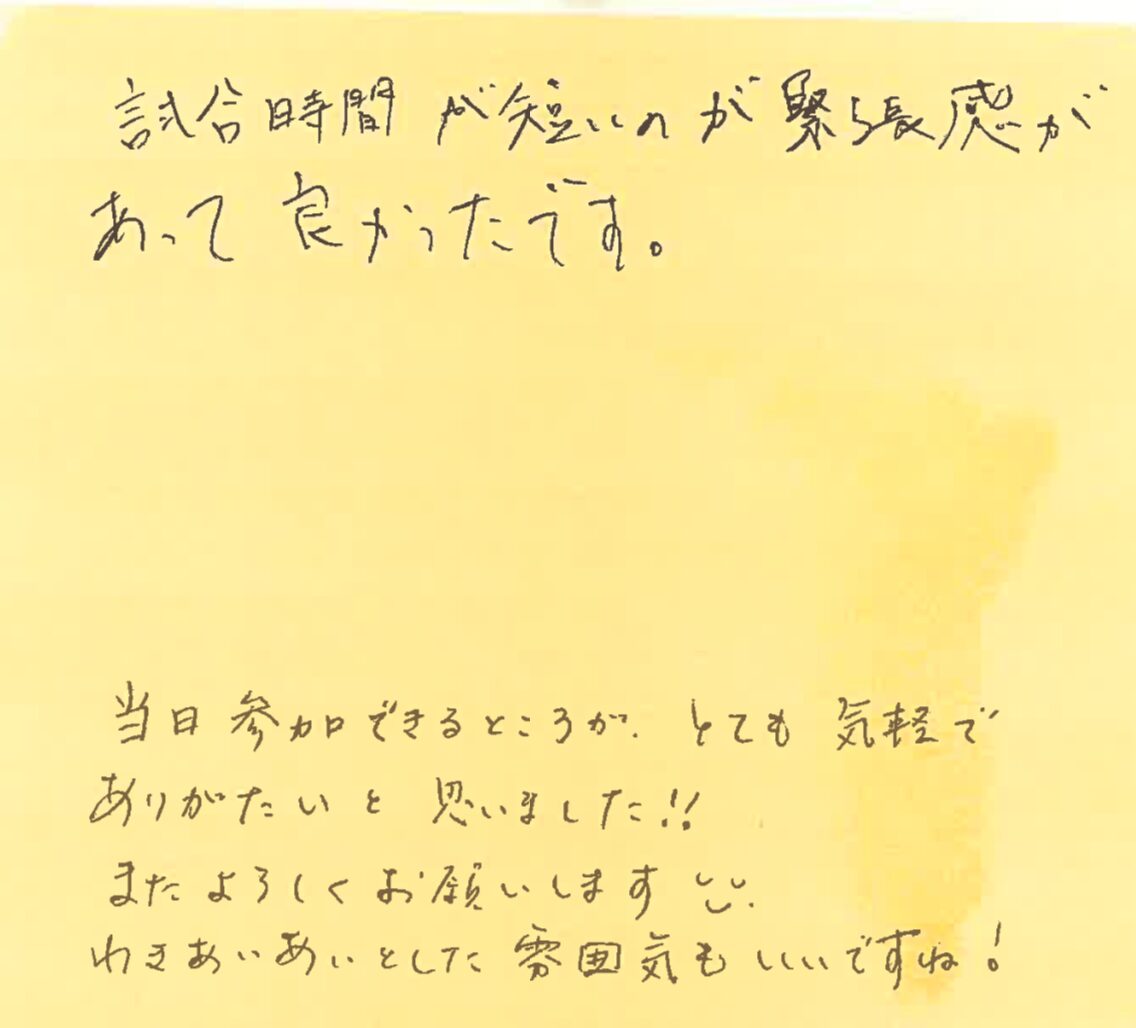 試合時間が短いのが緊張感が
あって良かったです。
当日参加できるところが、とても気軽で
ありがたいと思いました!!
またよろしくお願いします
わきあいあいとした雰囲気もいいですね!